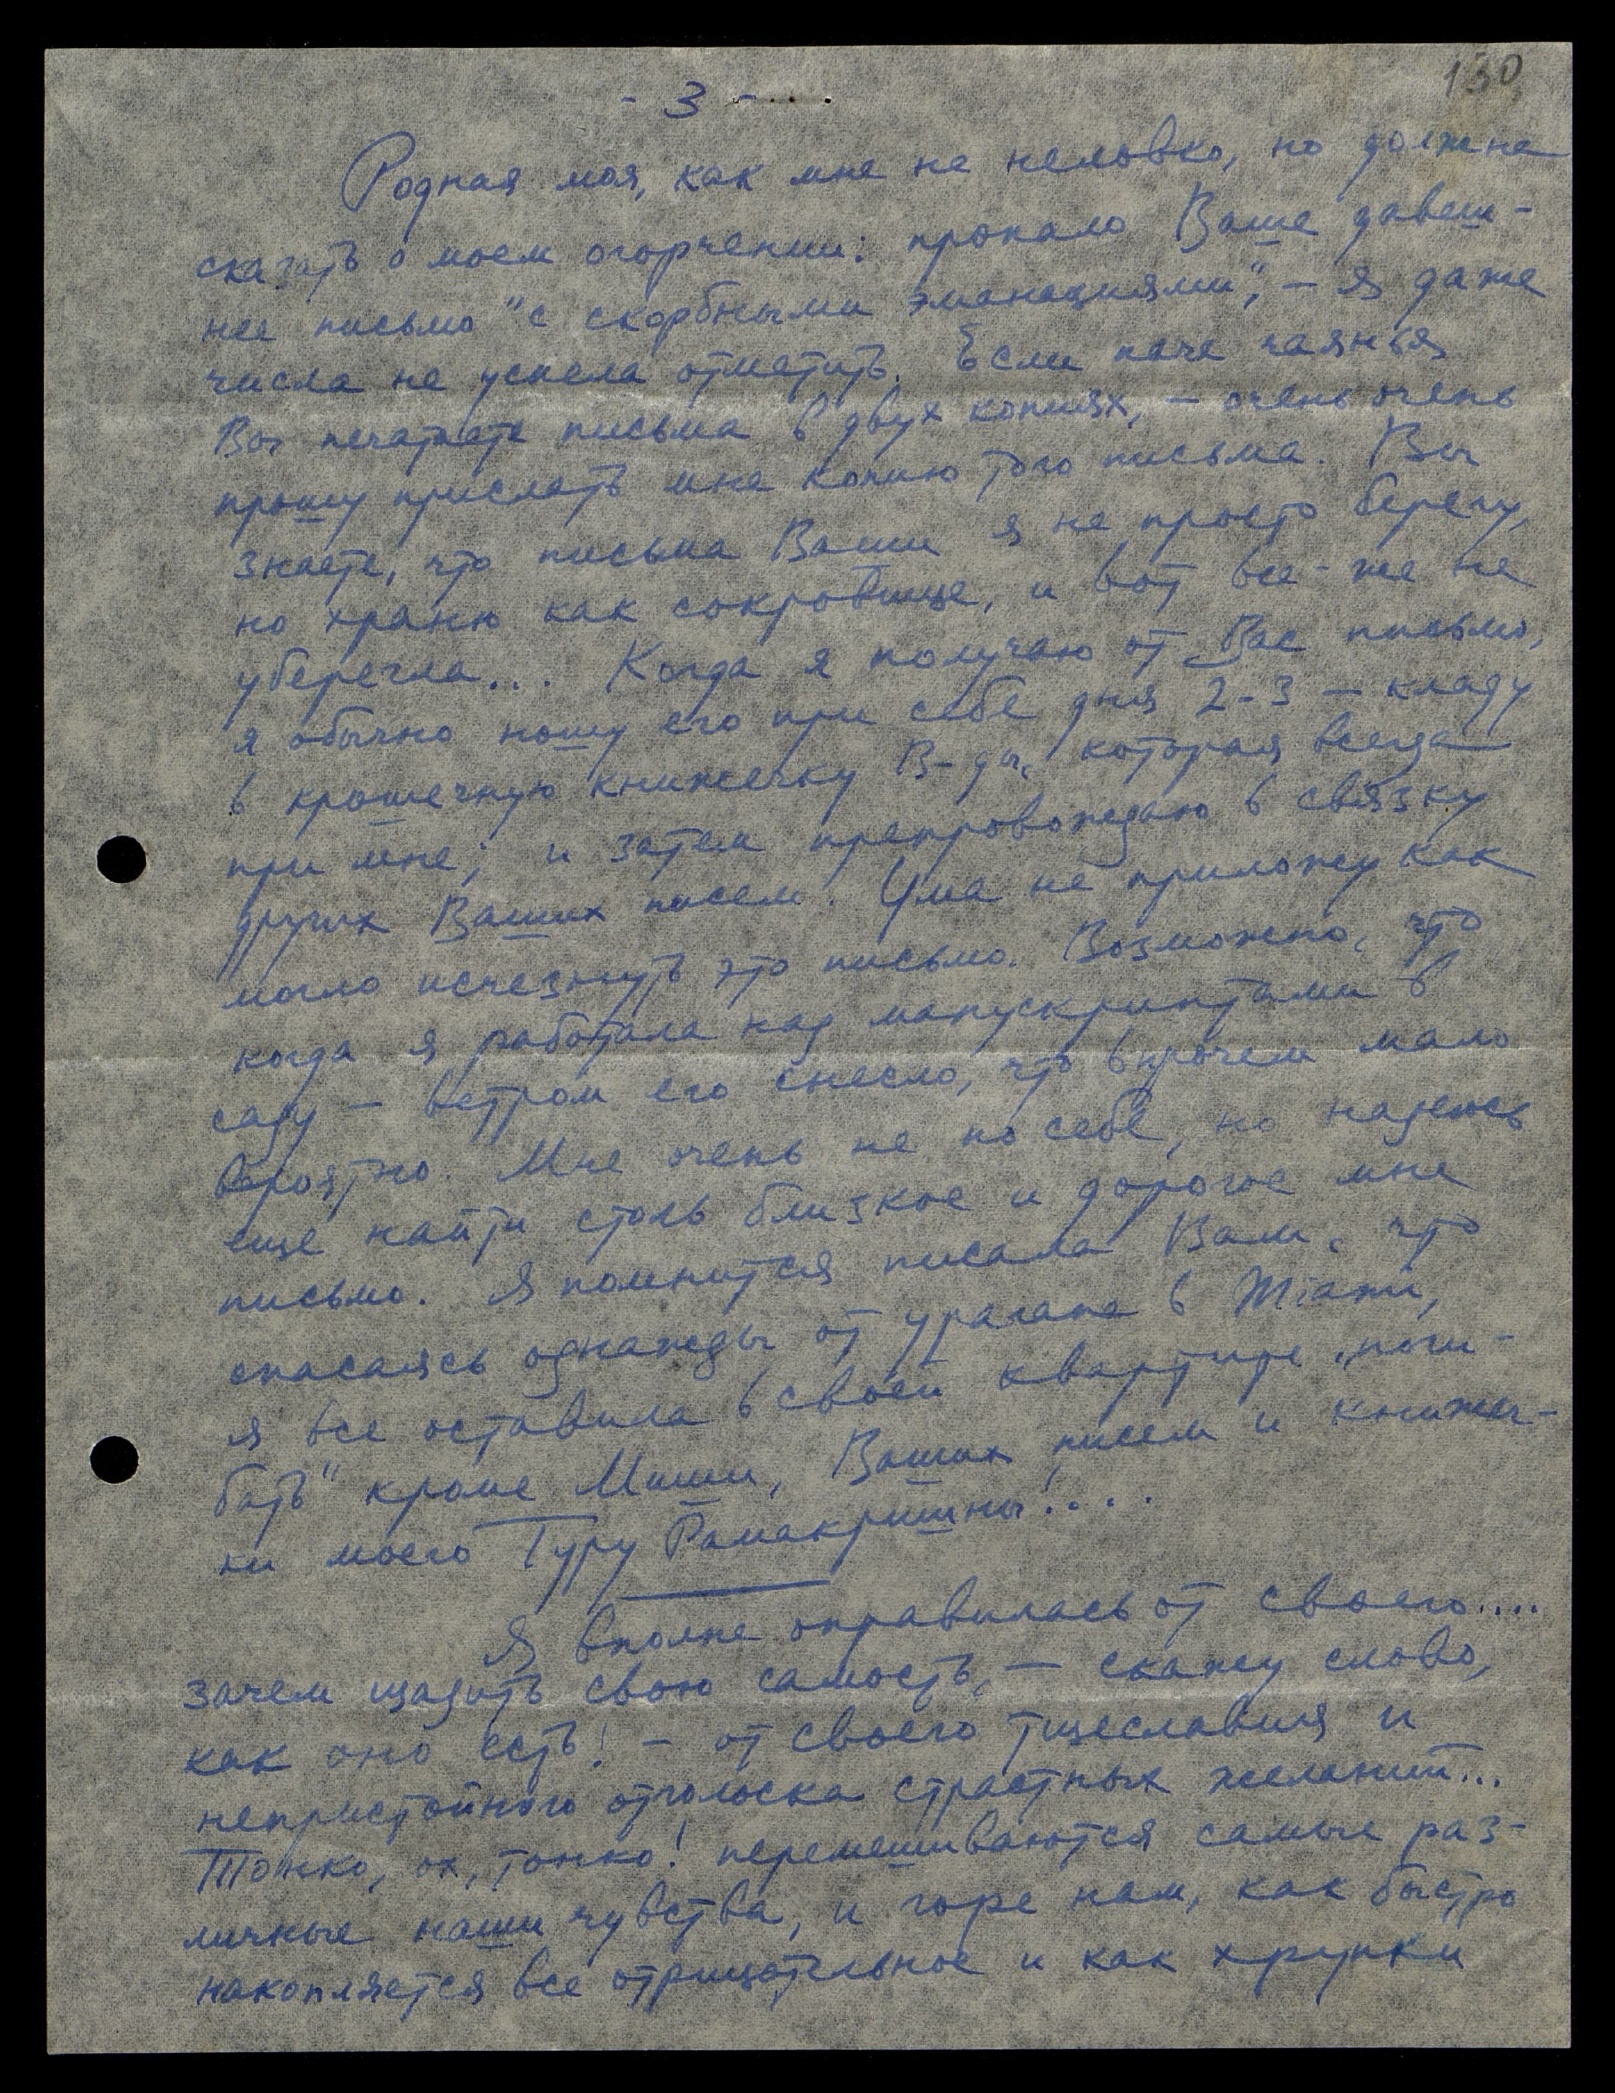 130
- 3 -
Родная моя, как мне не неловко, но должна
сказать о моем огорчении: пропало Ваше давеш-
нее письмо "с скорбными эманациями", – я даже
числа не успела отметить. Если паче чаянья
Вы печатаете письма в двух копиях, – очень очень
прошу прислать мне копию того письма. Вы
знаете, что письма Ваши я не просто берегу,
но храню как сокровище, и вот все-же не
уберегла... Когда я получаю от Вас письмо,
я обычно ношу его при себе дня 2-3 – кладу
в крошечную книжечку В-ды, которая всегда
при мне; и затем препровождаю в связку
других Ваших писем. Ума не приложу как
могло исчезнуть это письмо. Возможно, что
когда я работала над манускриптами в
саду – ветром его снесло, что впрочем мало
вероятно. Мне очень не по себе, но надеюсь
еще найти столь близкое и дорогое мне
письмо. Я помнится писала Вам, что
спасаясь однажды от урагана в Miami,
я все оставила в своей квартире „поги-
бать" кроме Миши, Ваших писем и книжеч-
ки моего Гуру Рамакришны!....
Я вполне оправилась от своего....
зачем щадить свою самость, – скажу слово,
как оно есть! – от своего тщеславия и
непристойного отголоска страстных желаний...
Тонко, ох, тонко! перемешиваются самые раз-
личные наши чувства, и горе нам, как быстро
накопляется все отрицательное и как хрупки